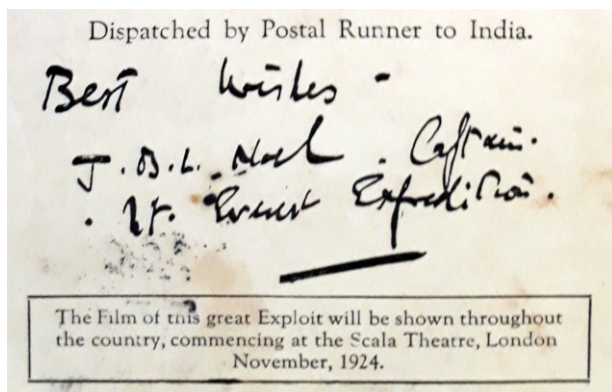 Dispatched by Postal Runner to India.
Best Wishes -
J.B.L. Noel. Captain.
. Mt. Everest Expedition.
The Film of this great Exploit will be shown throughout
the country, commencing at the Scala Theatre, London
November, 1924.